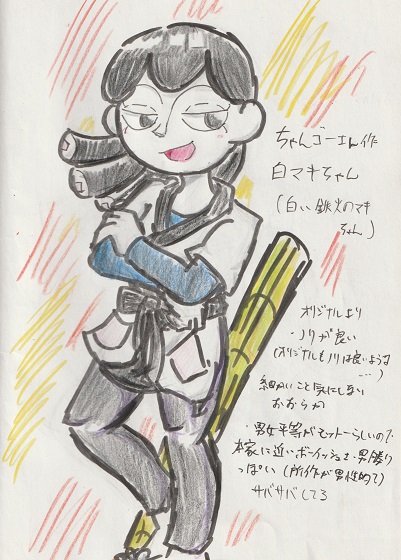 ちゃんゴーエん作
白マキちゃん
(白い鉄火のマキ
ちゃん)
オリジナルより
・ノリが良い
(オリジナルもノリは良いような
…)
細かいこと気にしない
おおらか
・男女平等がモットーらしいので、
本家に近いボーイッシュさ・男勝り
っぽい(所作が男性的で)
サバサバしてる